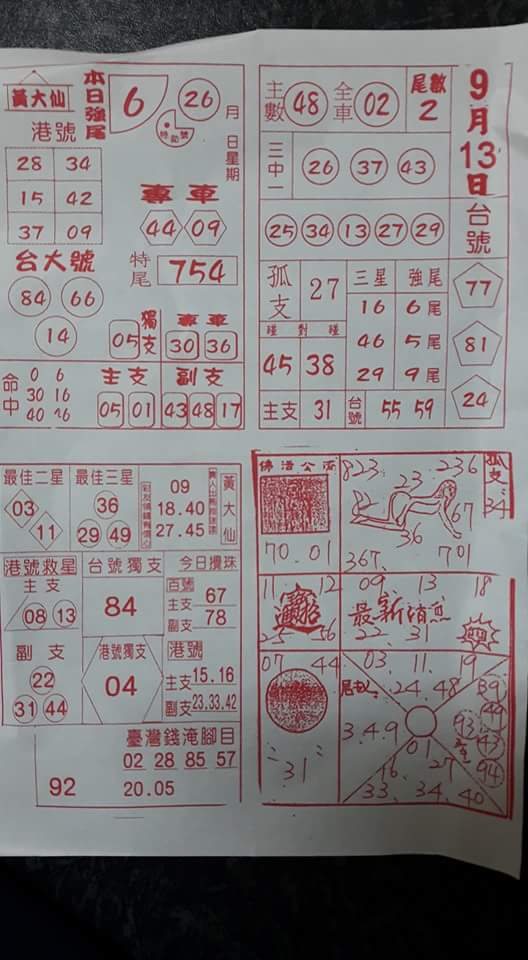 黃大仙
港號
本日強尾
6
26
月
日星期
特勍號
28 34
15 42
37 09
專車
44 09
台大號
84 66
14
特尾
754
05
獨支
專車
30 36
命中
0 6
30 16
40 26
主支
05 01
副支
43 48 17
主數
48
全車
02
尾數
2
9月13日
台號
三中一
26 37 43
25 34 13 27 29
孤支
27
三星 強尾
16 6尾
46 5尾
29 9尾
碰對碰
45 38
主支 31
台號
55 59
77
81
24
最佳二星
03
11
最佳三星
36
29 49
09
18.40
27.45
黃大仙
港號救星
主支
08 13
副支
22
31 44
台號獨支
84
港號獨支
04
今日攪珠
百號
主支 67
副支 78
港號
主支 15.16
副支 23.33.42
臺灣錢淹腳目
02 28 85 57
92
20.05
佛浩公流
70.01
823
23
236
67
36
367
701
孤支
34
11 12
招財進寶
25 36
09 13 18
最新消息
22 31
07 44
31
尾數
3.4.9
03. 11. 19
24.48
01
16 27
33. 34. 40
39
49
93
43
94